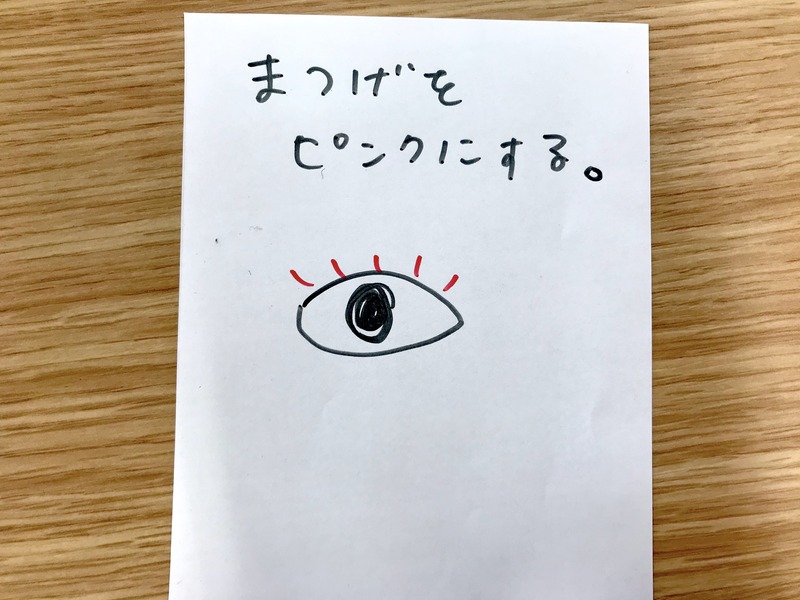 まつげを
ピンクにする。